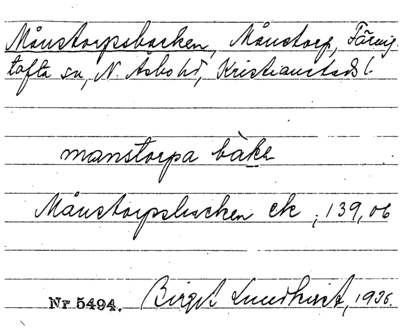 Månstorpsbacken, Månstorp, Färing-
tofta sn, N. Åsbo hd, Kristianstads l.
manstorpa bàka
Månstorpsbacken ek, 139, 06
Nr 5494. Birgit Lundkvist, 1936.